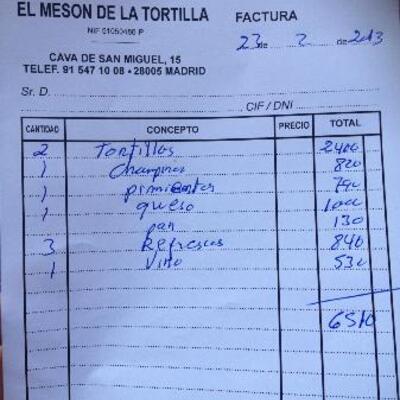 EL MESON DE LA TORTILLA FACTURA
NIF 01050450 P
23 de 2 de 2013
CAVA DE SAN MIGUEL, 15
TELEF. 91 547 10 08 • 28005 MADRID
Sr. D.
CIF / DNI
CANTIDAD CONCEPTO PRECIO TOTAL
2 Tortillas 2400
1 Champiñon 820
1 pimientos 790
1 queso 1000
pan 130
3 Refrescos 840
1 Vino 530
6510